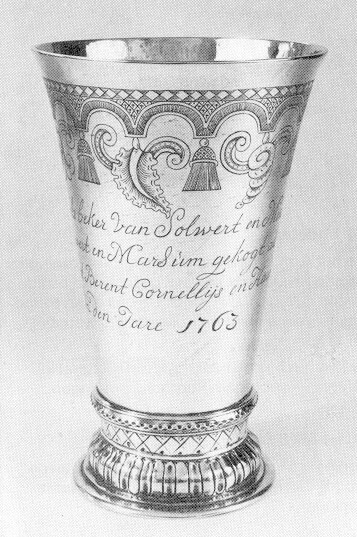 beker Van Solwert en
en Marsum gekogt
Berent Cornellijs en
Jare 1763